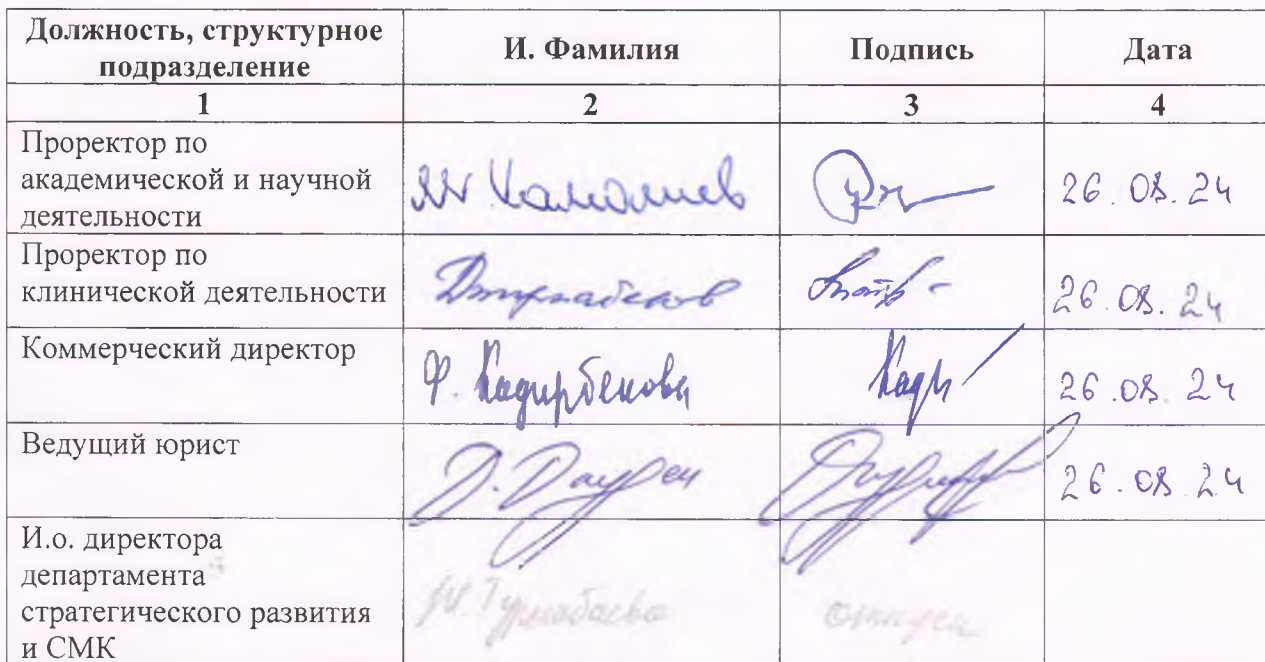 Должность, структурное подразделение
И. Фамилия
Подпись
Дата
1
2
3
4
Проректор по
академической и научной
деятельности
26.08.24
Проректор по
клинической деятельности
26.08.24
Коммерческий директор
Ф. Кадирбекова
26.08.24
Ведущий юрист
Д. Даурен
26.08.24
И.о. директора
департамента
стратегического развития
и СМК
отпуск